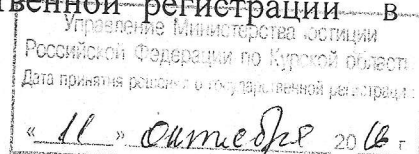 твенной регистрации в
Управление Министерства юстиции
Российской Федерации по Курской области
Дата принятия решения о государственной регистрации:
« 11 » октября 20 16 г